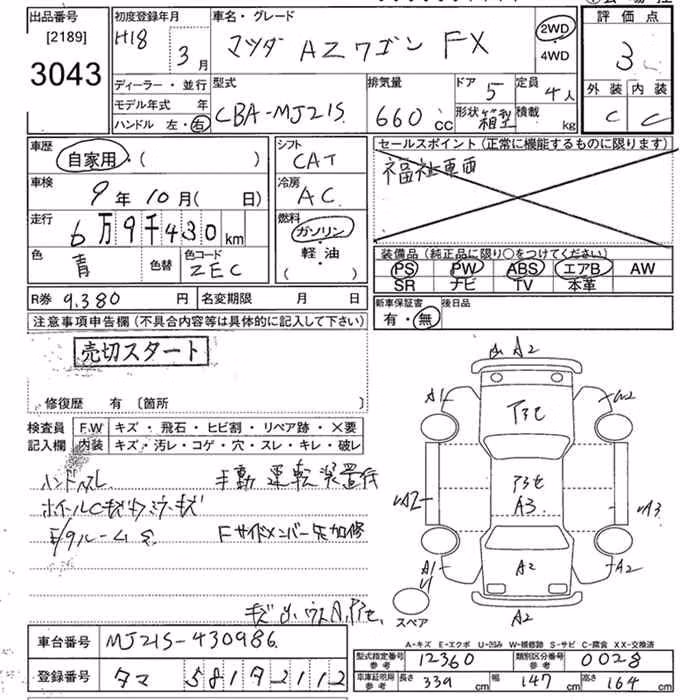 出品番号
[2189]
3043
初度登録年月
H18
3月
車名・グレード
マツダ AZワゴン FX
2WD
・4WD
評価点
3
外装 内装
C C
ディーラー・並行
モデル年式 年
ハンドル 左・右
型式
CBA-MJ21S
排気量
660cc
ドア
5
形状 箱型
定員
4人
積載
kg
車歴
自家用・(　)
車検
9年10月(　日)
走行
6万9千430km
色
青
色替
色コード
ZEC
シフト
CAT
冷房
AC
燃料
ガソリン・
軽・油
(　)
セールスポイント(正常に機能するものに限ります)
福祉車両
装備品(純正品に限り○をつけてください)
PS PW ABS エアB AW
SR ナビ TV 本革
R券 9,380円 名変期限 月 日
新車保証書
有・無
後日品
注意事項申告欄(不具合内容等は具体的に記入して下さい)
売切スタート
修復歴 有 〔箇所
検査員
記入欄
F.W キズ・飛石・ヒビ割・リペア跡・×要
内装 キズ・汚レ・コゲ・穴・スレ・キレ・破レ
ハンドルスレ 手動運転装置付
ホイールCキズ
ルーム
Fサイドメンバー先加修
A2
A1
W2
A2
A3
A3
A1
A2
A2
A2
スペア
A-キズ E-エクボ U-凹み W-補修跡 S-サビ C-腐食 XX-交換済
車台番号 MJ21S-430986
登録番号 タマ 581 タ 2112
型式指定番号
参考
12360
類別区分番号
参考
0028
車車証明用
参考
長さ 339cm 幅 147cm 高さ 164cm